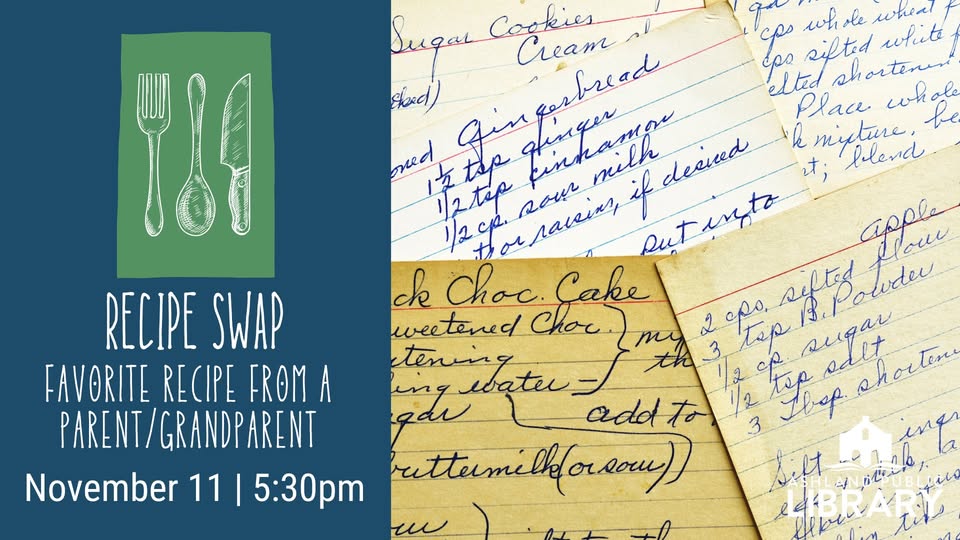 RECIPE SWAP
FAVORITE RECIPE FROM A
PARENT/GRANDPARENT
November 11 | 5:30pm
Sugar Cookies
Cream
Gingerbread
1½ tsp ginger
1/2 tsp cinnamon
1/2 cp. sour milk
or raisins, if desired
put in to
cps whole wheat f
cps sifted white f
elted shortenin
Place whole
k mixture, be
blend
ck Choc. Cake
weetened Choc.
tening
ing water
ugar
add to
buttermilk (or sour)
apple
2 cps. sifted flour
3 tsp B. Powder
1/2 cp. sugar
1/2 tsp salt
3 Tbsp shorteni
Sift
ingr
ASHLAND PUBLIC
LIBRARY